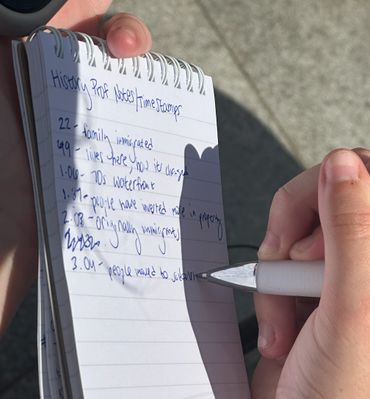 History Prof Notes/Timestamps
22 - family immigrated
49 - likes here, how its changed
1.06 - 70s waterfront
1.37 - people have invested more in property
2.03 - originally immigrants
3.04 - people moved to